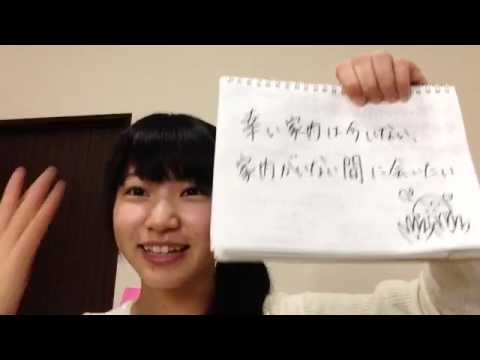 幸い家内は今いない、
家内がいない間に会いたい